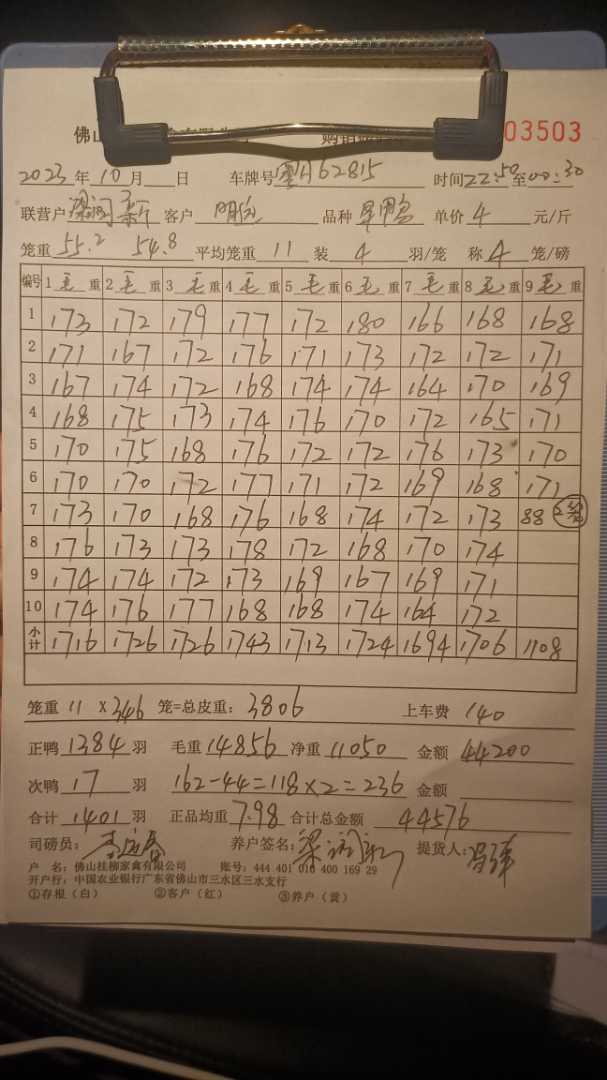 佛山 购销 03503
2023年10月 日 车牌号粤A62815 时间22:50至00:30
联营户梁润新 客户 明记 品种 单价4元/斤
笼重55.2 54.8 平均笼重11装4羽/笼 称4笼/磅
编号 1毛重 2毛重 3毛重 4毛重 5毛重 6毛重 7毛重 8毛重 9毛重
1 173 172 179 177 172 180 166 168 168
2 171 167 172 176 171 173 172 172 171
3 167 174 172 168 174 174 164 170 169
4 168 175 173 174 176 170 172 165 171
5 170 175 168 176 172 172 176 173 170
6 170 170 172 177 171 172 169 168 171
7 173 170 168 176 168 174 172 173 88 2笼
8 176 173 173 178 172 168 170 174
9 174 174 172 173 169 167 169 171
10 174 176 177 168 168 174 164 172
小计 1716 1726 1726 1743 1713 1724 1694 1706 1108
笼重11×346笼=总皮重:3806 上车费140
正鸭1384羽 毛重14856净重11050 金额44200
次鸭17羽 162-44=118×2=236 金额
合计1401羽 正品均重7.98合计总金额44576
司磅员: 养户签名:梁润新 提货人:
户 名:佛山桂柳家禽有限公司 账号:444 401 010 400 169 29
开户行:中国农业银行广东省佛山市三水区三水支行
①存根(白) ②客户(红) ③养户(黄)